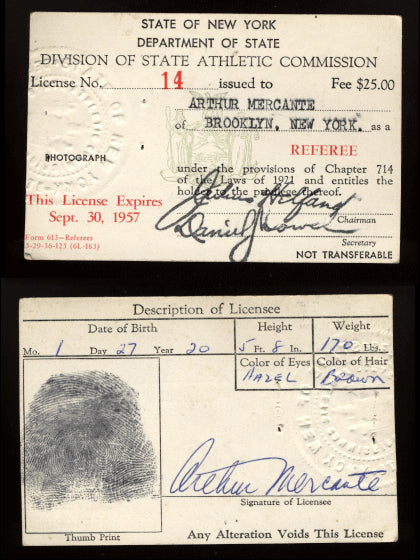 STATE OF NEW YORK
DEPARTMENT OF STATE
DIVISION OF STATE ATHLETIC COMMISSION
License No. 14 issued to Fee $25.00
ARTHUR MERCANTE
of BROOKLYN, NEW YORK. as a
REFEREE
PHOTOGRAPH
under the provisions of Chapter 714
of the Laws of 1921 and entitles the
holder to the privilege thereof.
This License Expires
Sept. 30, 1957
Julius Helfand
Chairman
Form 613—Referees
Daniel J
5-29-56-125 (6L-183)
Secretary
NOT TRANSFERABLE
Description of Licensee
Date of Birth Height Weight
Mo. 1 Day 27 Year 20 5 Ft. 8 In. 170 Lbs.
Color of Eyes Color of Hair
HAZEL Brown
Arthur Mercante
Signature of Licensee
Thumb Print Any Alteration Voids This License